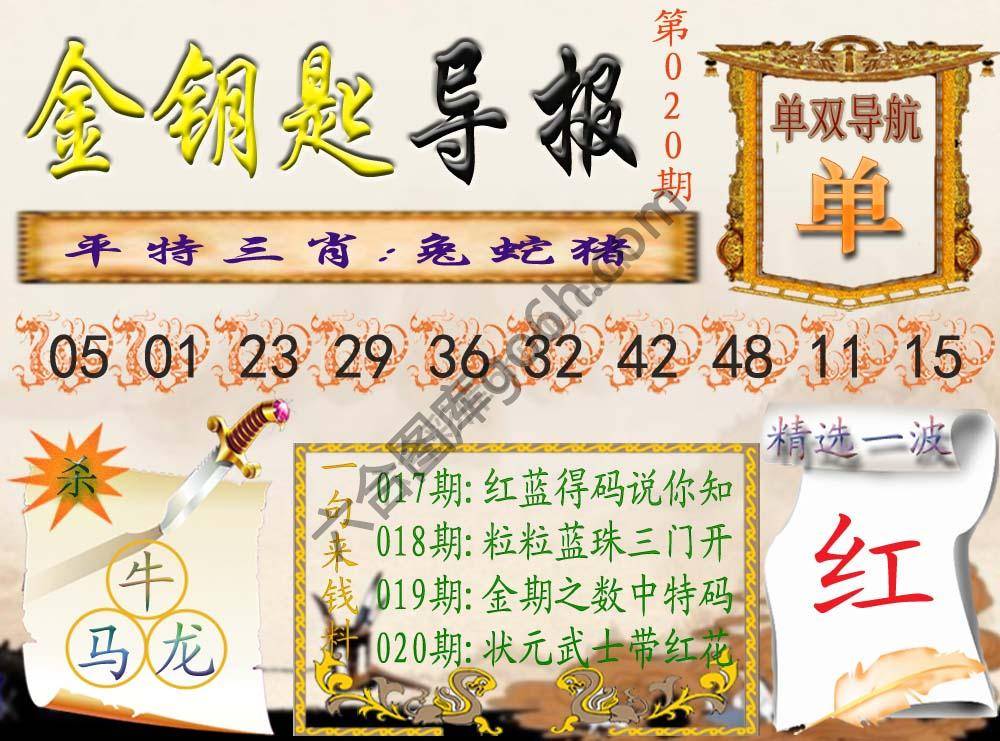 金钥匙导报
第020期
单双导航
单
平特三肖:兔蛇猪
05 01 23 29 36 32 42 48 11 15
杀
牛
马龙
一句来钱料
017期:红蓝得码说你知
018期:粒粒蓝珠三门开
019期:金期之数中特码
020期:状元武士带红花
精选一波
红
六合图库966h.com